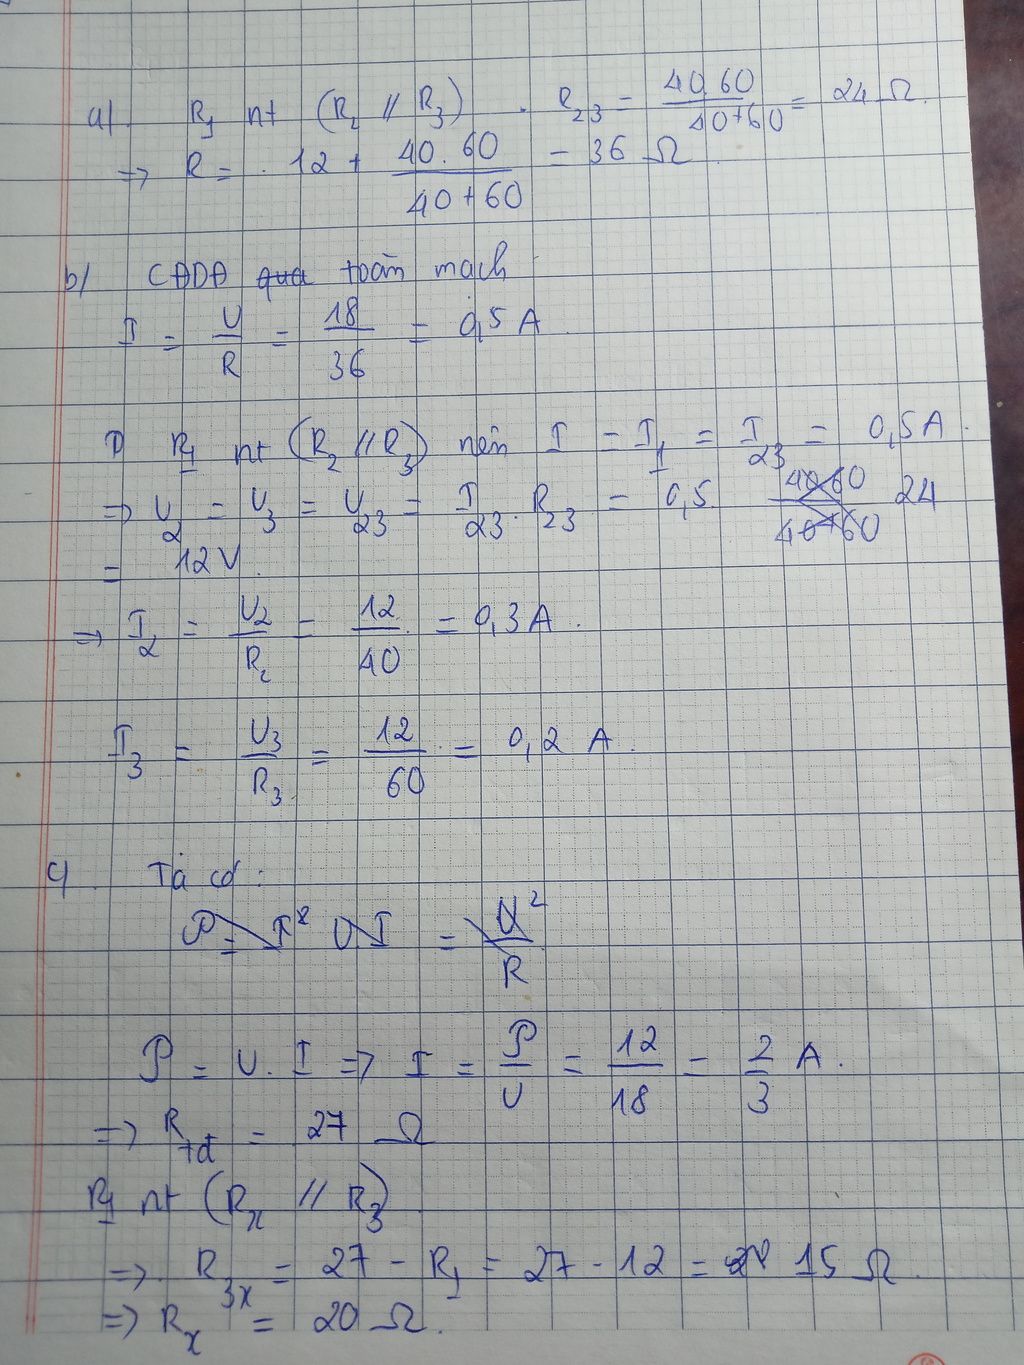 a). R1 nt (R2 // R3). R23 = 40.60 / 40+60 = 24 Ω.
=> R = 12 + 40.60 / 40+60 = 36 Ω.
b) CĐDĐ qua toàn mạch
I = U/R = 18/36 = 0,5 A.
D R1 nt (R2 // R3) nên I = I1 = I23 = 0,5A.
=> U2 = U3 = U23 = I23. R23 = 0,5. 40.60 / 40+60 24
= 12V.
=> I2 = U2/R2 = 12/40 = 0,3A.
I3 = U3/R3 = 12/60 = 0,2 A.
c). Ta có:
P = I² UI = U²/R
P = U. I => I = P/U = 12/18 = 2/3 A.
=> Rtđ = 27 Ω
R1 nt (Rx // R3)
=> R3x = 27 - R1 = 27 - 12 = 15 Ω.
=> Rx = 20 Ω.